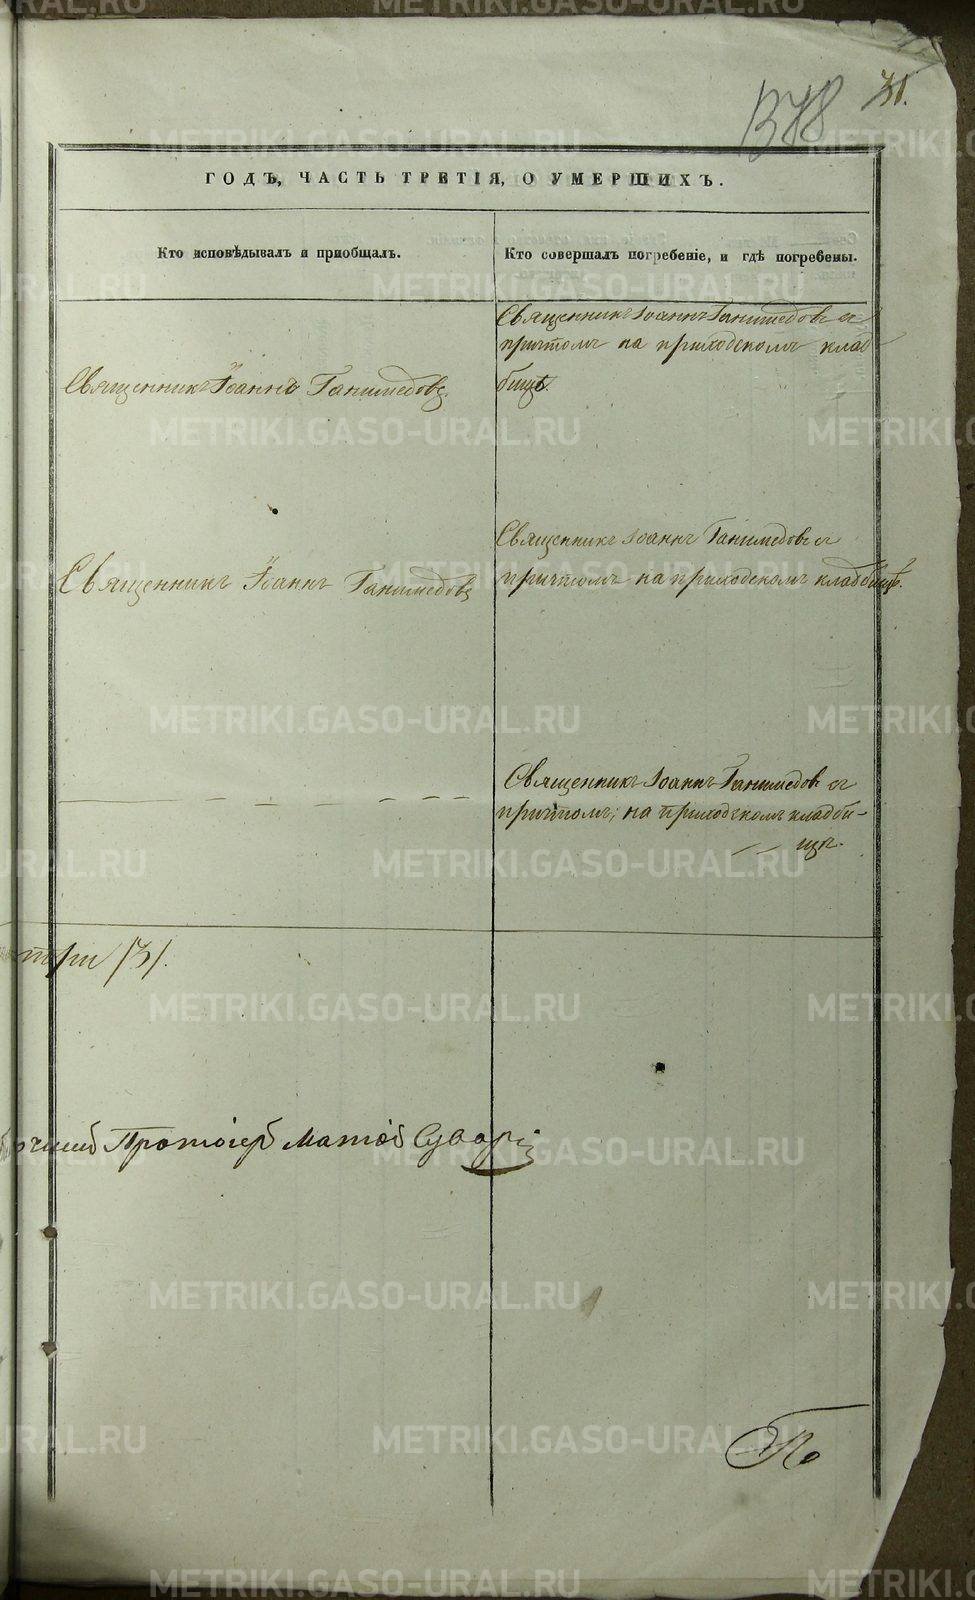 1378
31.
ГОДЪ, ЧАСТЬ ТРЕТІЯ, О УМЕРШИХЪ.
Кто исповѣдывалъ и приобщалъ.
Кто совершалъ погребеніе, и гдѣ погребены.
Священникъ Іоаннъ Ганимедовъ.
Священникъ Іоаннъ Ганимедовъ съ
причтомъ на приходскомъ клад
бищѣ.
Священникъ Іоаннъ Ганимедовъ
Священникъ Іоаннъ Ганимедовъ съ
причтомъ на приходскомъ кладбищѣ.
Священникъ Іоаннъ Ганимедовъ съ
причтомъ, на приходскомъ кладби-
щѣ.
три /3/.
Протоіерей
METRIKI.GASO-URAL.RU